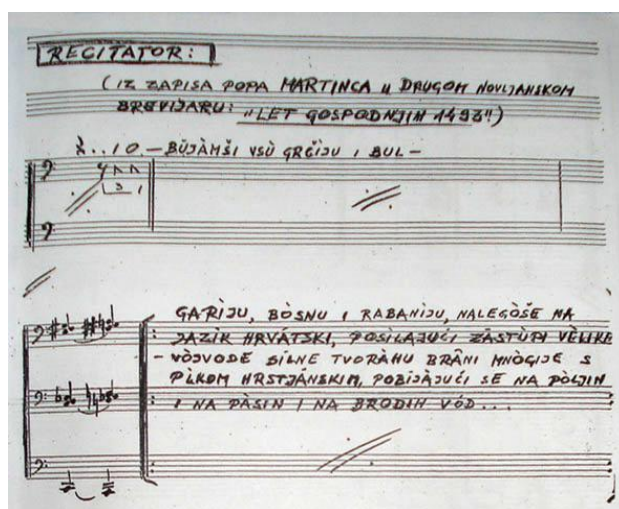 RECITATOR:
(IZ ZAPISA POPA MARTINCA U DRUGOM NOVLJANSKOM
BREVIJARU: "LET GOSPODNJIH 1493")
BÚJÀMŠI VSÙ GRČÌJU I BUL-
3
GARÌJU, BÒSNU I RABANÌJU, NALEGÒŠE NA
JAZÌK HRVÁTSKI, POSÌLAJUĆI ZÁSTÙPI VÈLIKE
- VÒJVODE SÌLNE TVORÀHU BRÂNI MNÒGIJE S
PÌLKOM HRSTJÁNSKIM, POBÌJÀJUĆI SE NA PÒLJIN
I NA PÀSIN I NA BRODIH VÓD...